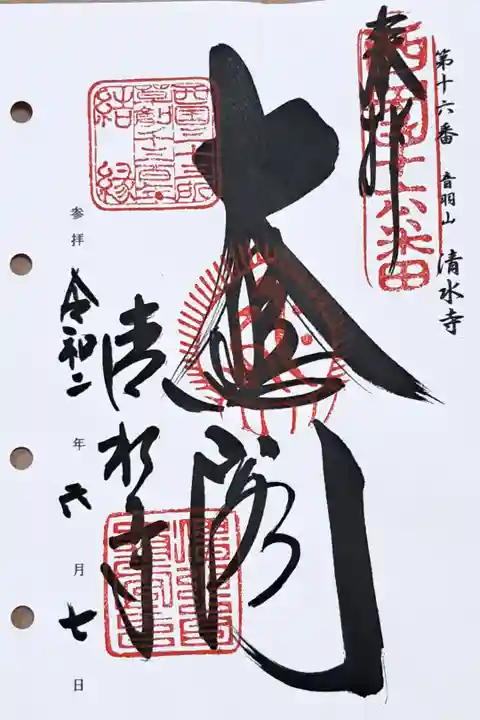 第十六番 音羽山 清水寺
奉拝
西国十六番
大悲閣
西国三十三所
草創千三百年
結縁
清水寺
参拝 令和二年六月七日